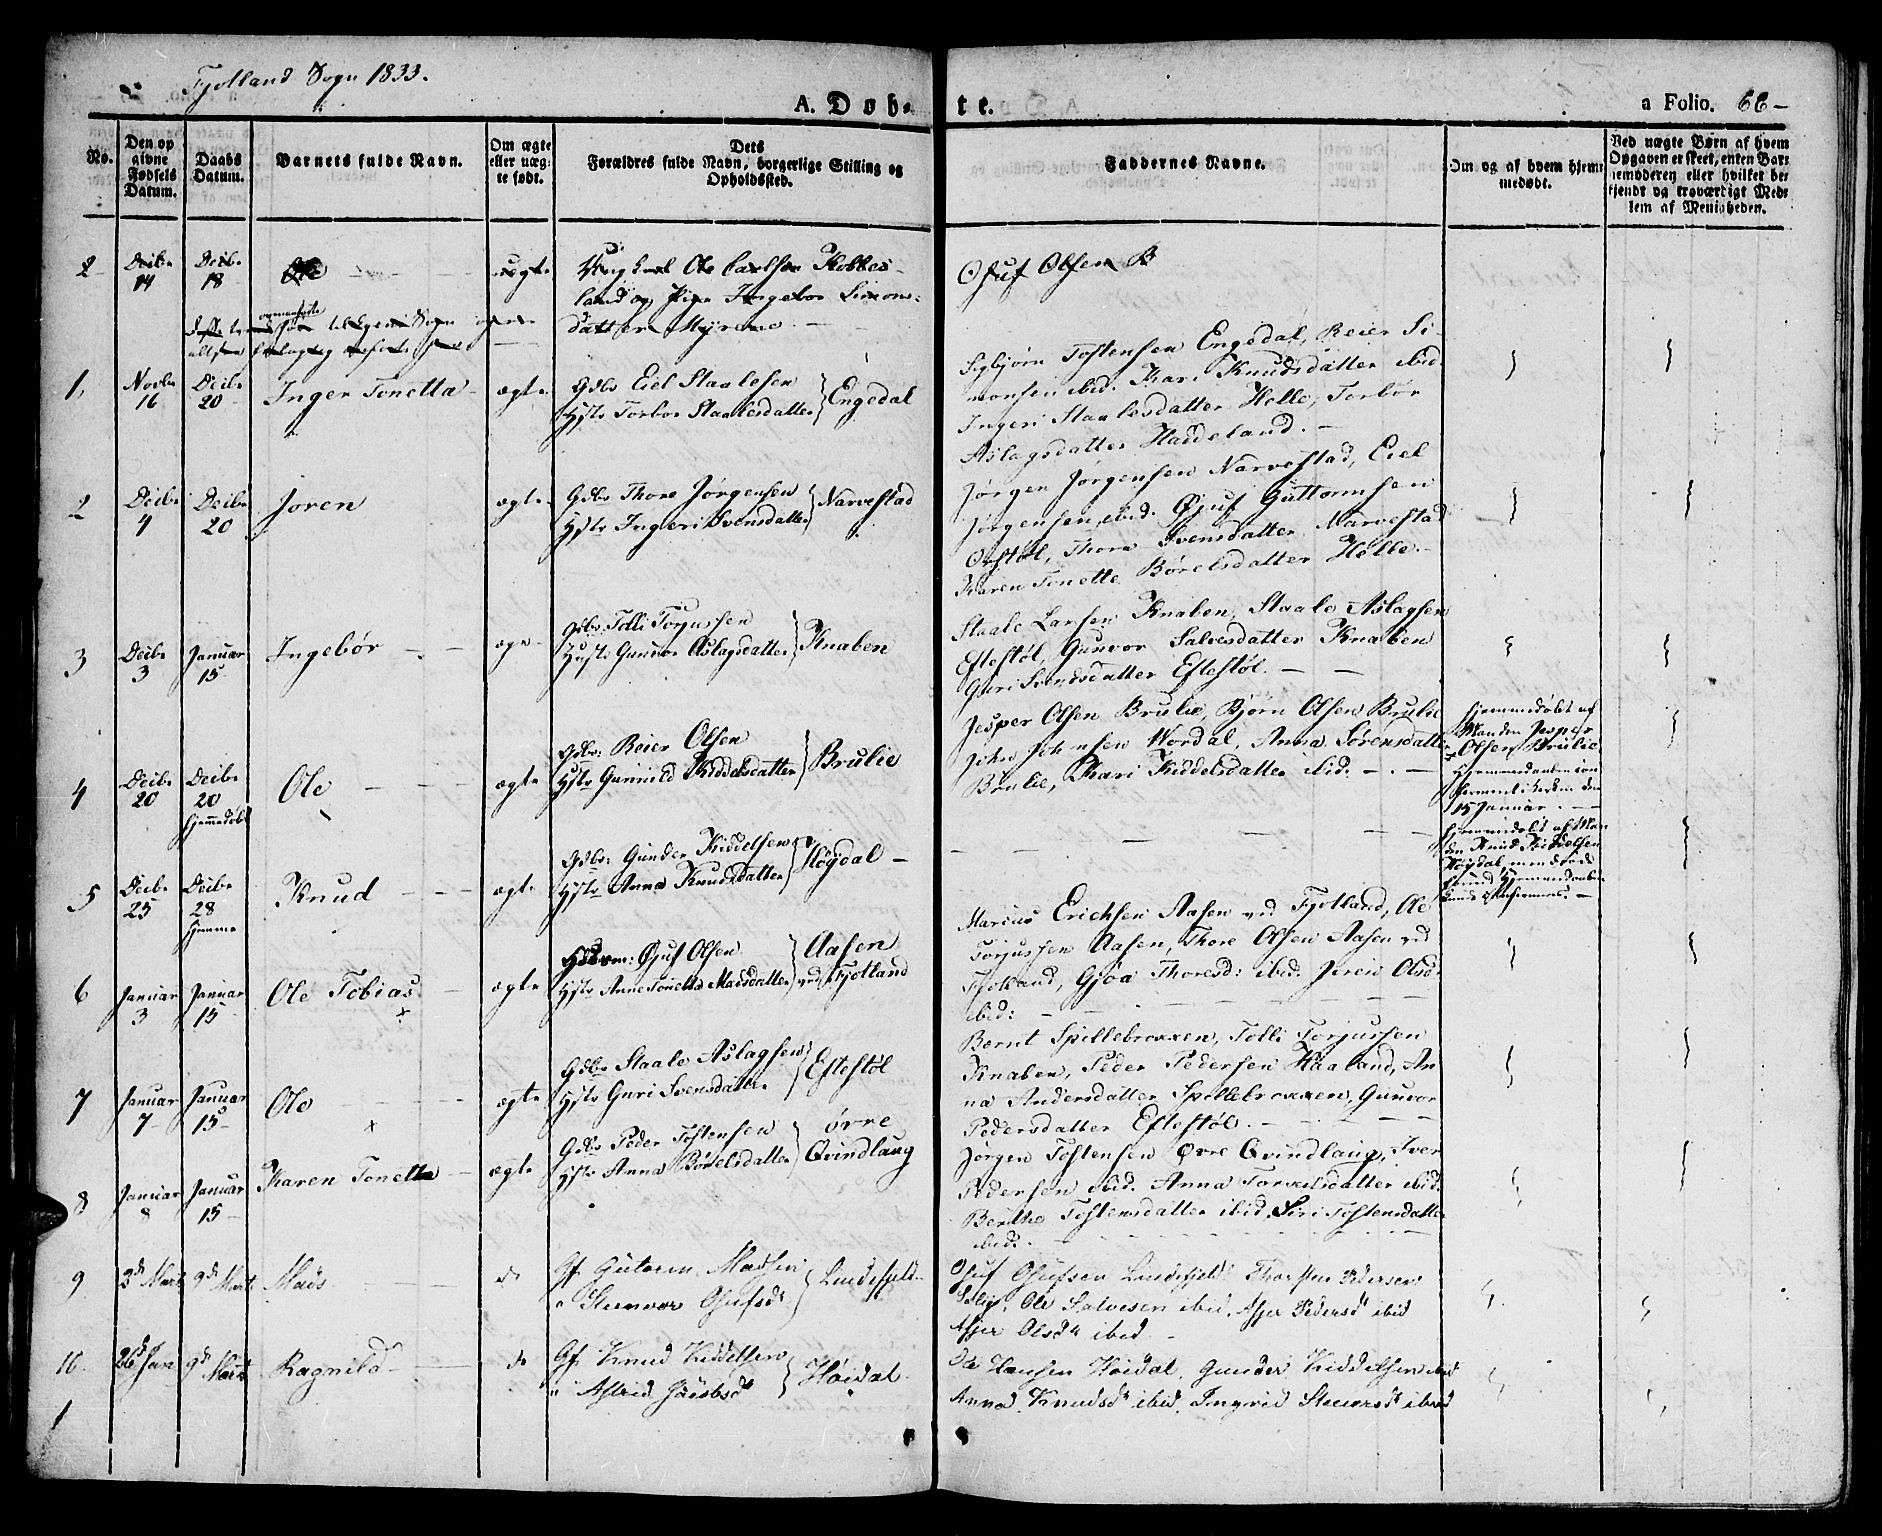 Fjotland Sogn 1833.
A. Døbte.
a Folio. 66-
No.
Den op
givne
Fødsels
Datum.
Daabs
Datum.
Barnets fulde Navn.
Om ægte
eller uæg-
te født.
Dets
Forældres fulde Navn, borgerlige Stilling og
Opholdssted.
Faddernes Navne.
Om og af hvem hjem-
medøbt.
Ved uægte Børn af hvem
Opgaven er skeet, enten Bar-
nemoderen eller hvilket be-
kjendt og troværdigt Med-
lem af Menigheden.
2 Decbr 14 Decbr 18 Ole uægte Ungkarl Ole Carlsen Kobbes-
land og Pige Ingebor Simons-
datter Myrene.
Osuf Olsen B
1, Novbr 16 Decbr 20 Inger Tonetta ægte Gdbr Eiel Staalesen
Hstr Torbor Staalesdatter } Engedal
Sigbjørn Tostensen Engedal, Reier Si-
monsen ibid. Kari Knudsdatter ibid.
Ingeri Staalesdatter Helle, Torbør
Aslagsdatter Haddeland.
2 Decbr 4 Decbr 20 Joren ægte Gdbr Thore Jørgensen
Hstr Ingeri Svensdatter } Narvestad
Jørgen Jørgensen Narvestad, Eiel
Jørgensen ibid. Øsuf Guttormsen
Thore Svensdatter Narvestad
Karen Tonette Børelsdatter Helle.
3 Decbr 3 Januar 15 Ingebør Gdbr Tolli Torjussen
Hustr Gunvor Aslagsdatter } Knaben
Staale Larsen Knaben, Staale Aslagsen
Eftestøl, Gunvor Salvesdatter Knaben
Guri Svendsdatter Eftestøl.
4 Decbr 20 Decbr 20 hjemmedøbt Ole ægte Gdbr: Reier Olsen
Hstr Gunnild Kiddelsdatter } Brulie
Jesper Olsen Brulie, Bjørn Olsen Brulie
John Johnsen Wordal, Anna Sørensdatter
Brulie, Kari Kiddelsdatter ibid.
hjemmedøbt af
Manden Jesper
Olsen Brulie
Hjemmedaaben con-
firmert i Kirken den
15 Januar.
5 Decbr 25 Decbr 28 hjemme Knud ægte Gdbr: Gunder Kiddelsen
Hstr Anna Knudsdatter } Høygdal
hjemmedøbt af Man
den Knud Kiddelsen
Høygdal, men døde
førend Hjemmedaaben
kunde confirmeres.
6 Januar 3 Januar 15 Ole Tobias ægte Øsuf Olsen
Hstr Anne Tonetta Madsdatter } Aasen
ved Fjotland
Marcus Erichsen Aasen ved Fjotland, Ole
Torjussen Aasen, Thore Olsen Aasen ved
Fjotland, Gjøa Thoresd: ibid. Joren Olsd.
ibid:
7 Januar 7 Januar 15 Ole ægte Gdbr Staale Aslagsen
Hstr Guri Svensdatter } Eftestøl
Bernt Spillebrokken, Tolli Torjussen
Knaben, Peder Pedersen Haaland, An
na Andersdatter Spillebrokken, Gunvor
Pedersdatter Eftestøl.
8 Januar 8 Januar 15 Karen Tonetta ægte Gdbr Peder Tostensen
Hstr Anna Børelsdatter } øvre
Qvindlaug
Jørgen Tostensen Øvre Qvindlaug, Iver
Pedersen ibid. Anna Torkelsdatter ibid.
Berthe Tostensdatter ibid. Siri Tostensdatter
ibid.
9 3d Mart 9d Marts Mads do Gf Gutorm Madsen
Gunvor Osufsd } Lindefjeld
Osuf Osufsen Lindefjeld Thorsten Pedersen
Ole Salvesen ibid, Asjer Pedersd ibid
Asjer Olsd ibid
10. 26d Jan 9d Marts Ragnild do Gf Knud Kiddelsen
Astrid Jacobsd } Høidal
Ole Hansen Høidal, Gunder Kiddelsen ibid
Anna Knudsd ibid, Ingrid ibid